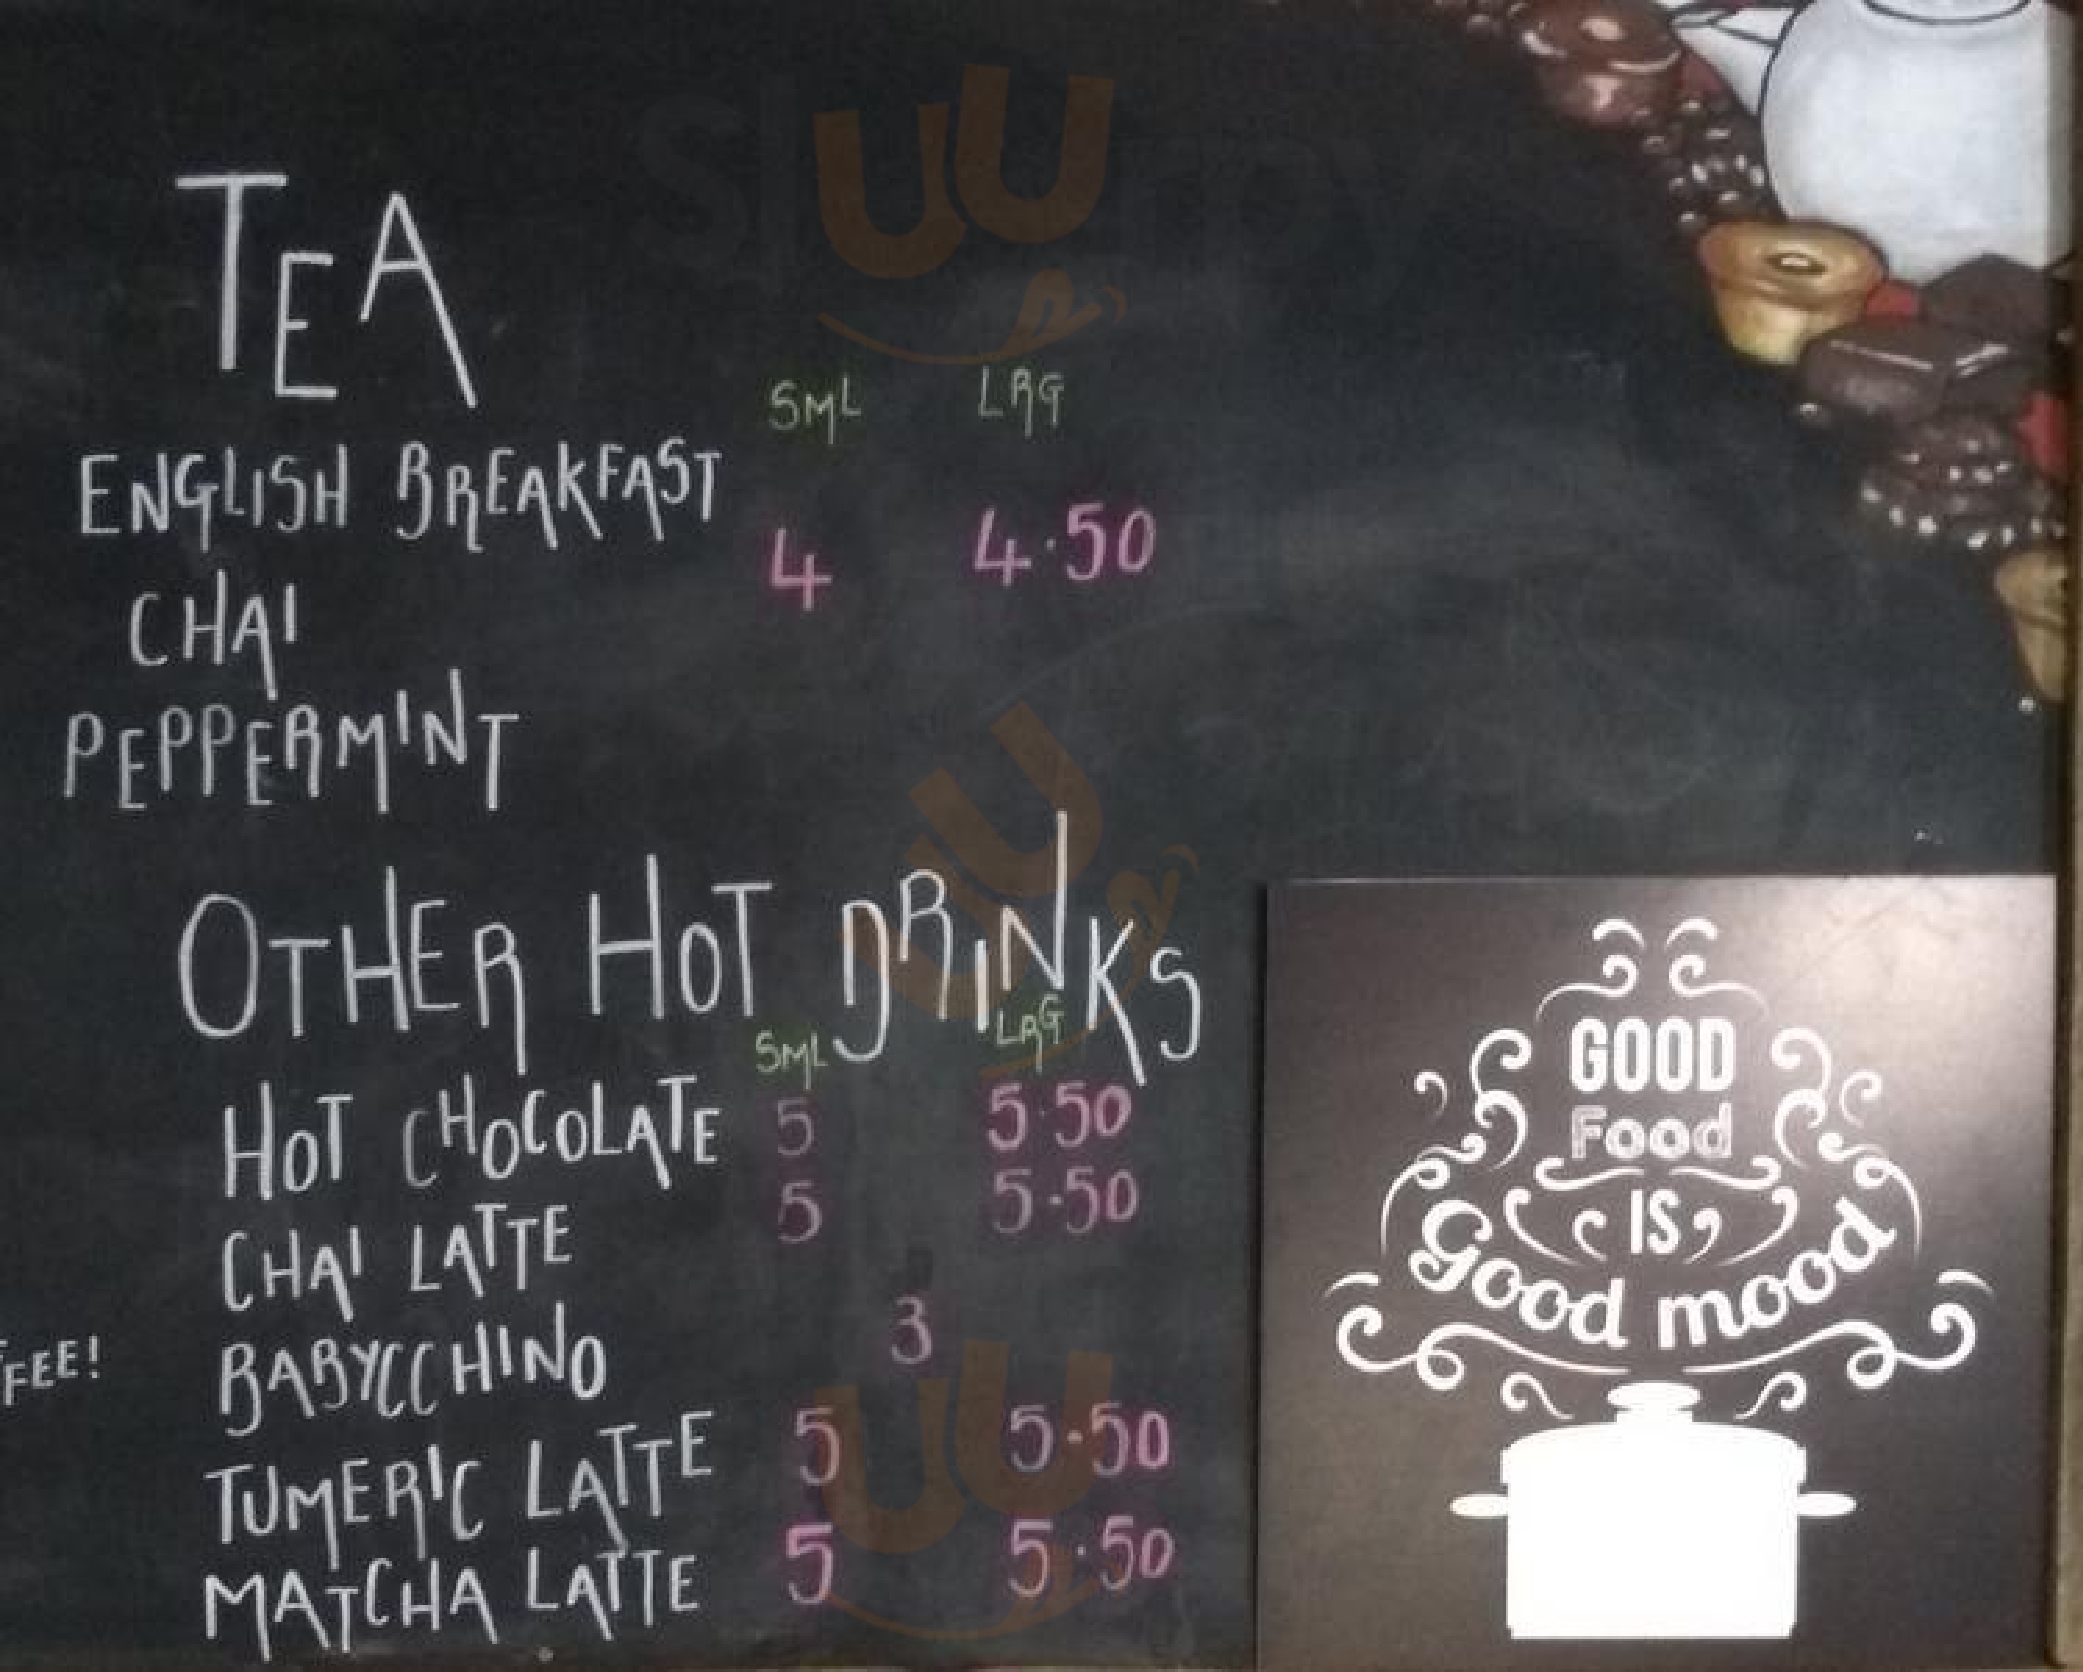 TEA
SML LRG
ENGLISH BREAKFAST
4 4.50
CHAI
PEPPERMINT
OTHER HOT DRINKS
SML LRG
HOT CHOCOLATE 5 5.50
CHAI LATTE 5 5.50
BABYCCHINO 3
TUMERIC LATTE 5 5.50
MATCHA LATTE 5 5.50
FEE!
GOOD
Food
IS
Good mood
sluurpy